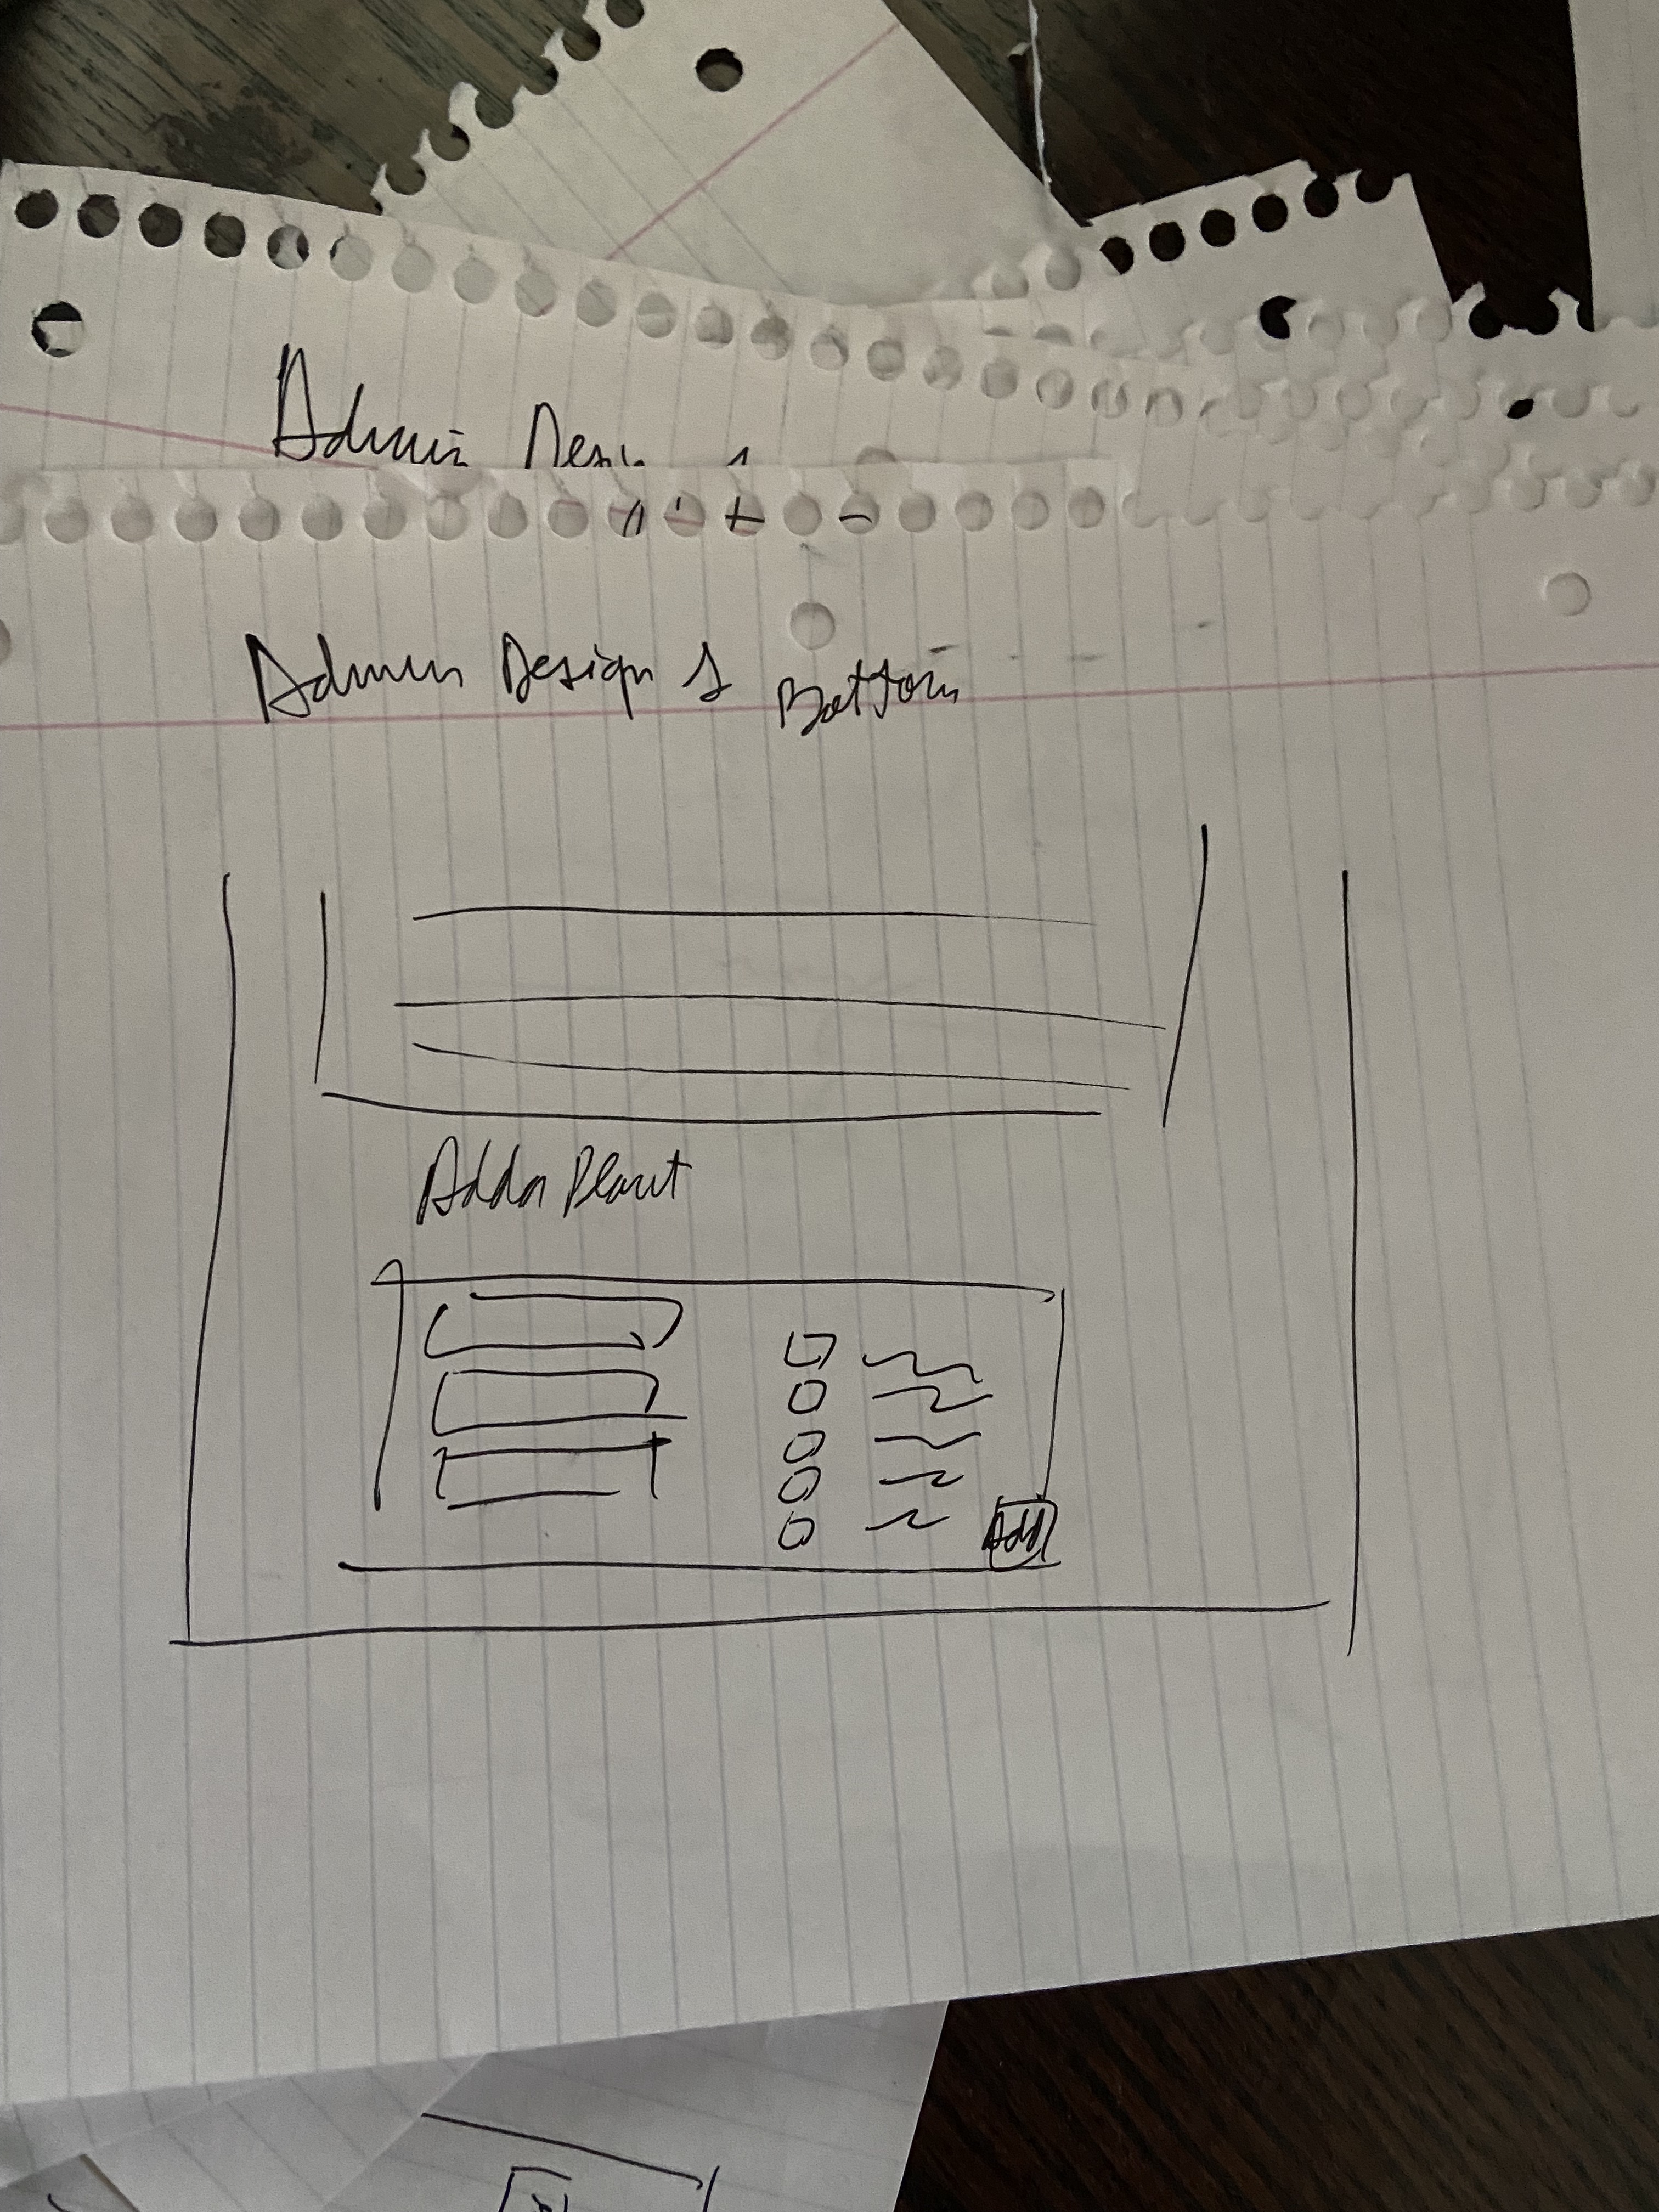 Admin Design 1
Admin Design 1 Bottom
Add a Plant
Add